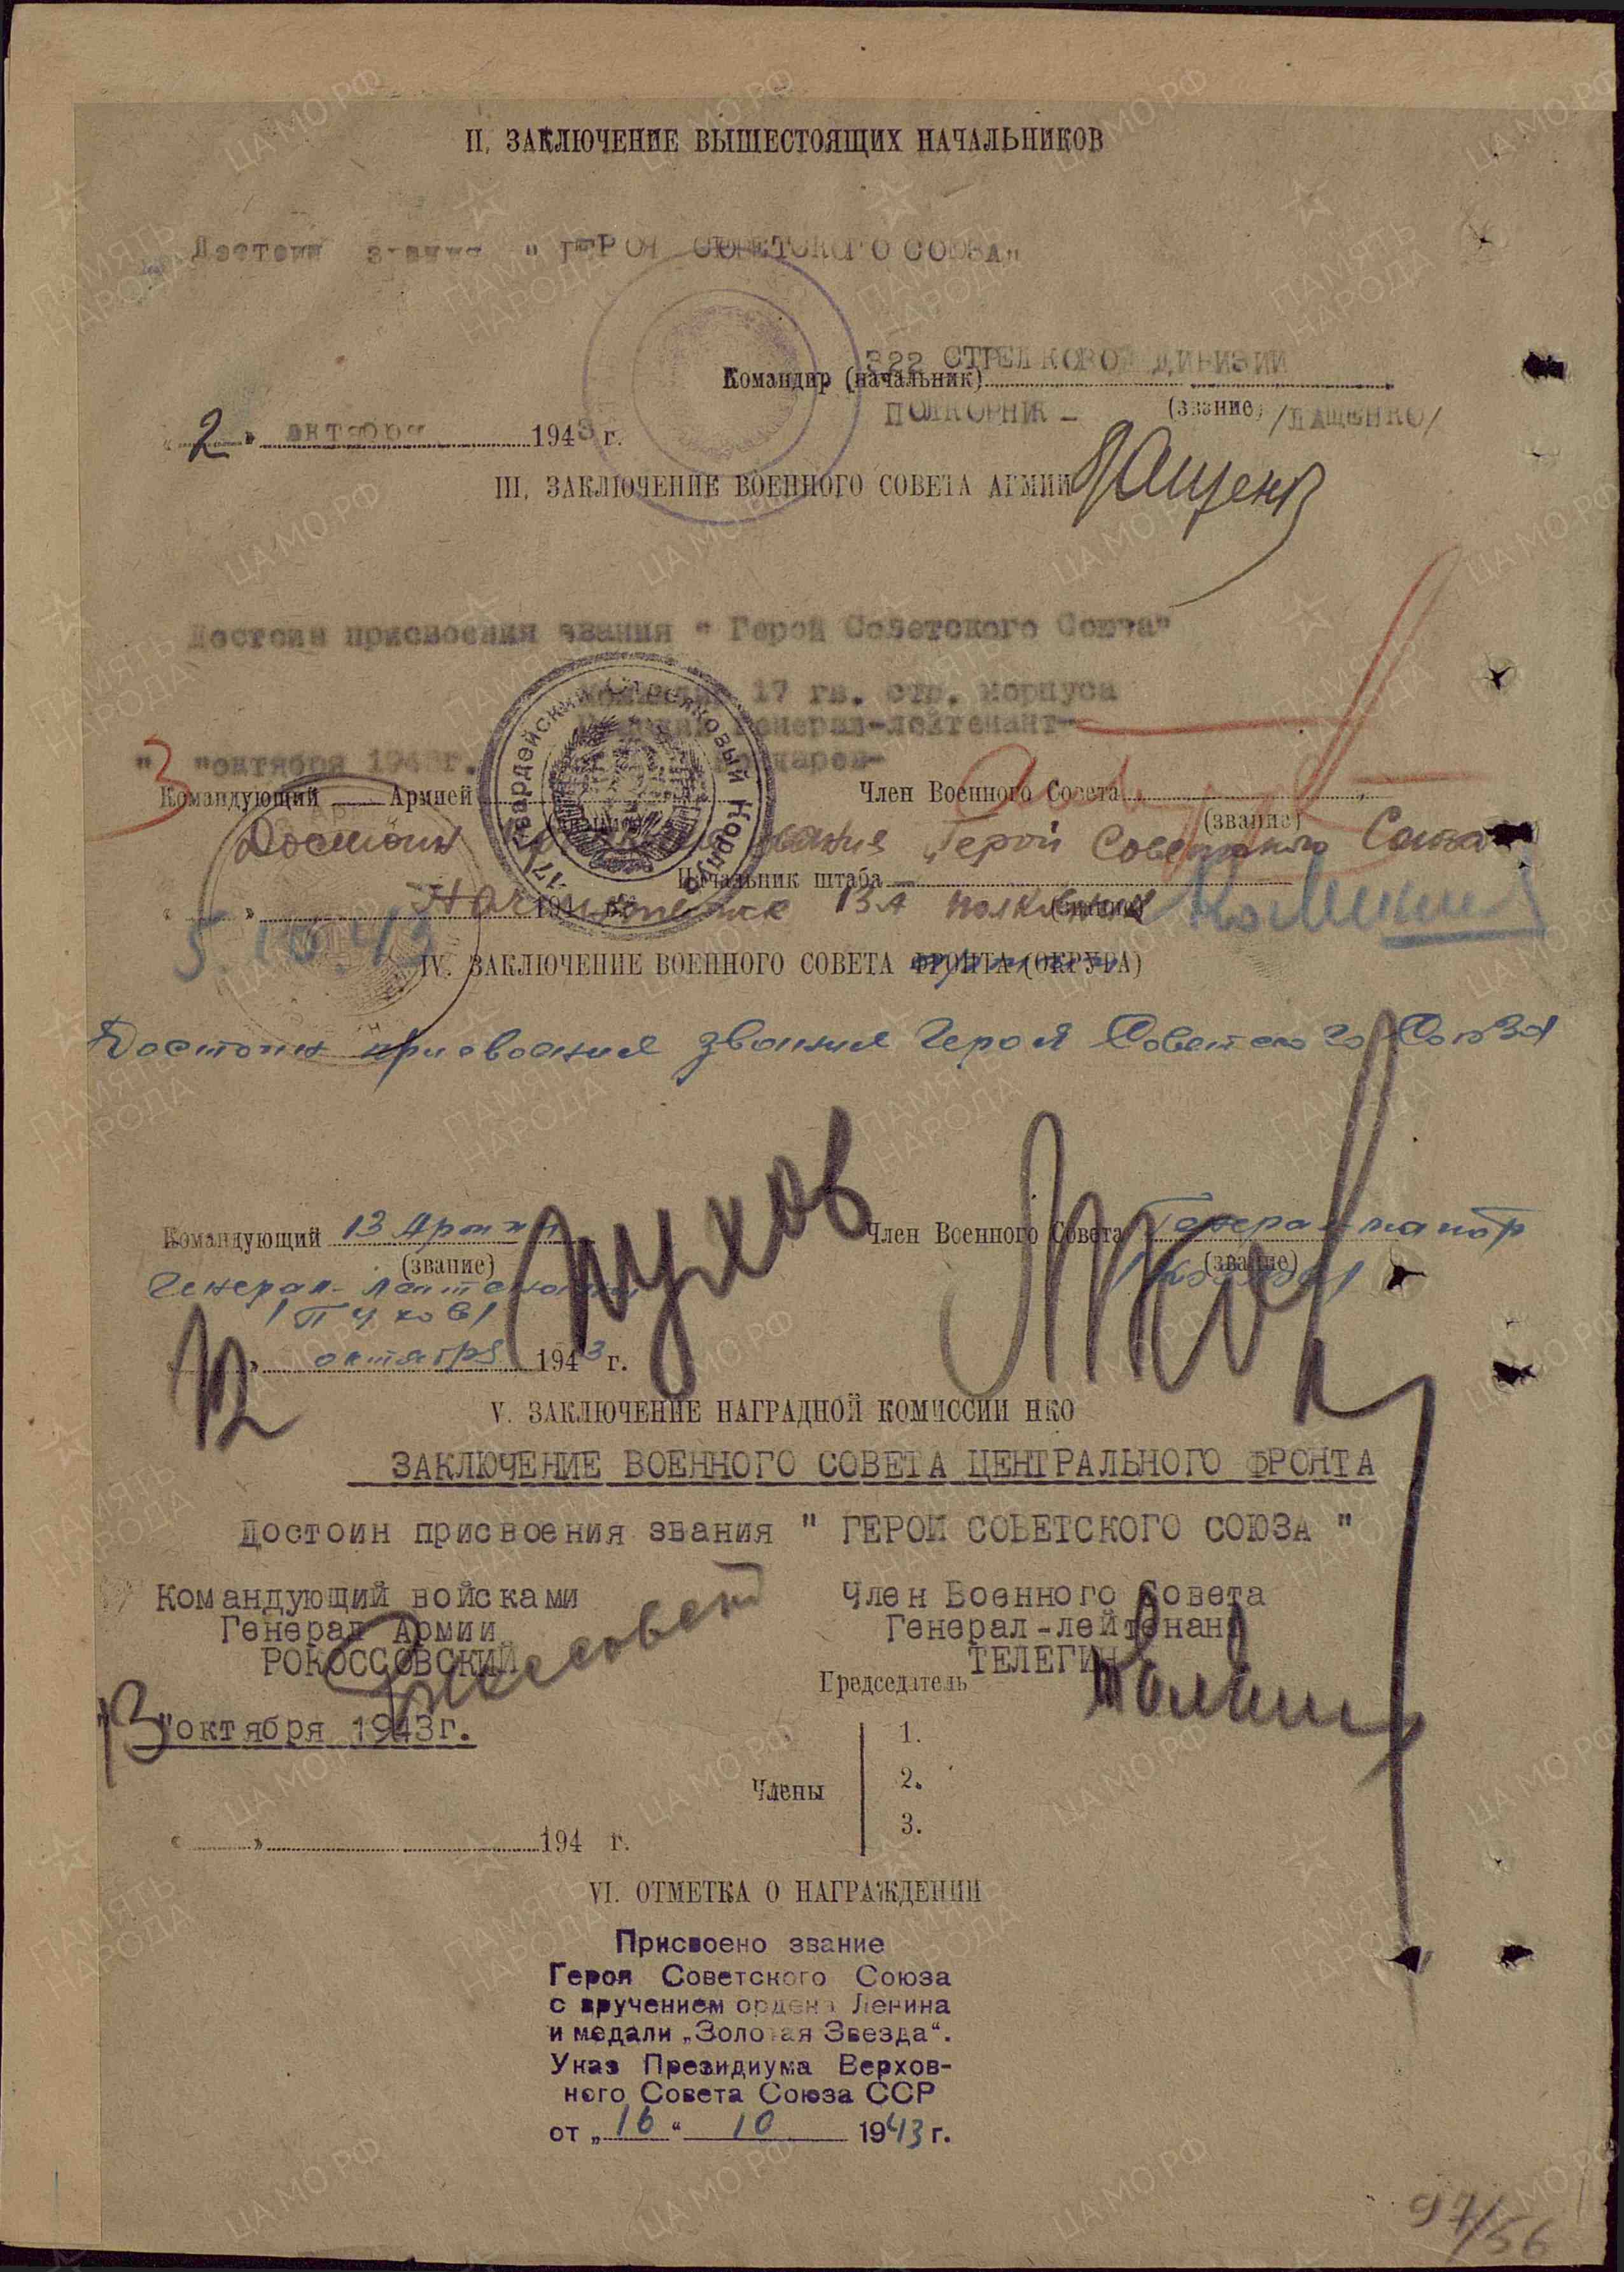 II. ЗАКЛЮЧЕНИЕ ВЫШЕСТОЯЩИХ НАЧАЛЬНИКОВ
Достоин звания " ГЕРОЯ СОВЕТСКОГО СОЮЗА"
322 СТРЕЛКОВОЙ ДИВИЗИИ
Командир (начальник)
ПОЛКОВНИК - (звание) /ЛАЩЕНКО/
« 2 » октября 1943 г.
III. ЗАКЛЮЧЕНИЕ ВОЕННОГО СОВЕТА АРМИИ
Достоин присвоения звания " Герой Советского Союза"
17 гв. стр. корпуса
генерал-лейтенант-
"3 "октября 1943г.
Командующий Армией
Член Военного Совета
(звание)
Достоин звания „Герой Советского Союза
Начальник штаба
194
13А
5.10.43
IV. ЗАКЛЮЧЕНИЕ ВОЕННОГО СОВЕТА ФРОНТА (ОКРУГА)
Достоин присвоения звания Героя Советского Союза
Командующий 13 Армии
Член Военного Совета Генерал-майор
(звание)
(звание)
Генерал-лейтенант
/Пухов/
Пухов
/Козлов/
12 » октября 1943 г.
V. ЗАКЛЮЧЕНИЕ НАГРАДНОЙ КОМИССИИ НКО
ЗАКЛЮЧЕНИЕ ВОЕННОГО СОВЕТА ЦЕНТРАЛЬНОГО ФРОНТА
Достоин присвоения звания " ГЕРОЙ СОВЕТСКОГО СОЮЗА "
Командующий войсками
Член Военного Совета
Генерал Армии
Генерал-лейтенант
РОКОССОВСКИЙ
ТЕЛЕГИН
Председатель
"13"октября 1943г.
Члены
1.
2.
3.
« » 194 г.
VI. ОТМЕТКА О НАГРАЖДЕНИИ
Присвоено звание
Героя Советского Союза
с вручением ордена Ленина
и медали „Золотая Звезда“.
Указ Президиума Верхов-
ного Совета Союза ССР
от „16“ 10 1943 г.
97/56
ЦАМО.РФ
ПАМЯТЬ
НАРОДА